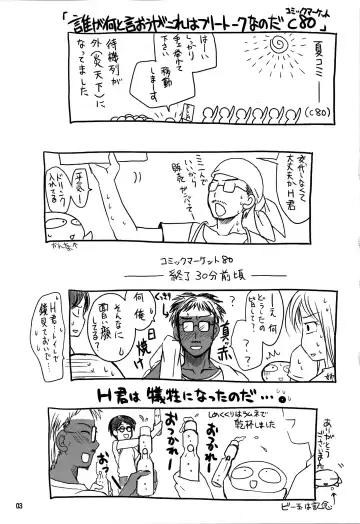 「誰が何と言おうがこれはフリートークなのだ コミックマーケットC80」
夏コミー
(C80)
はーい
しっかり
手を挙げて
下さい
移動
しまーす
待機列が
外(炎天下)に
なってました
交代しなくて
大丈夫かH君
ミニ人で
いいから
販売
平気ー
ドリンク
入れてるー
コミックマーケット80
終了30分前頃
え?
どうしたの
皆して?
?
真っ赤
日
焼
け
くっきり
何
何
俺
そんなに
面白い顔
してる?
H君…トイレで
鏡見ておいで…
H君は犠牲になったのだ…。
しめくくりはラムネで
乾杯しました
おつかれー
おつかれー
おつー
ありがとう
ございましたー
ビー玉は記念
03